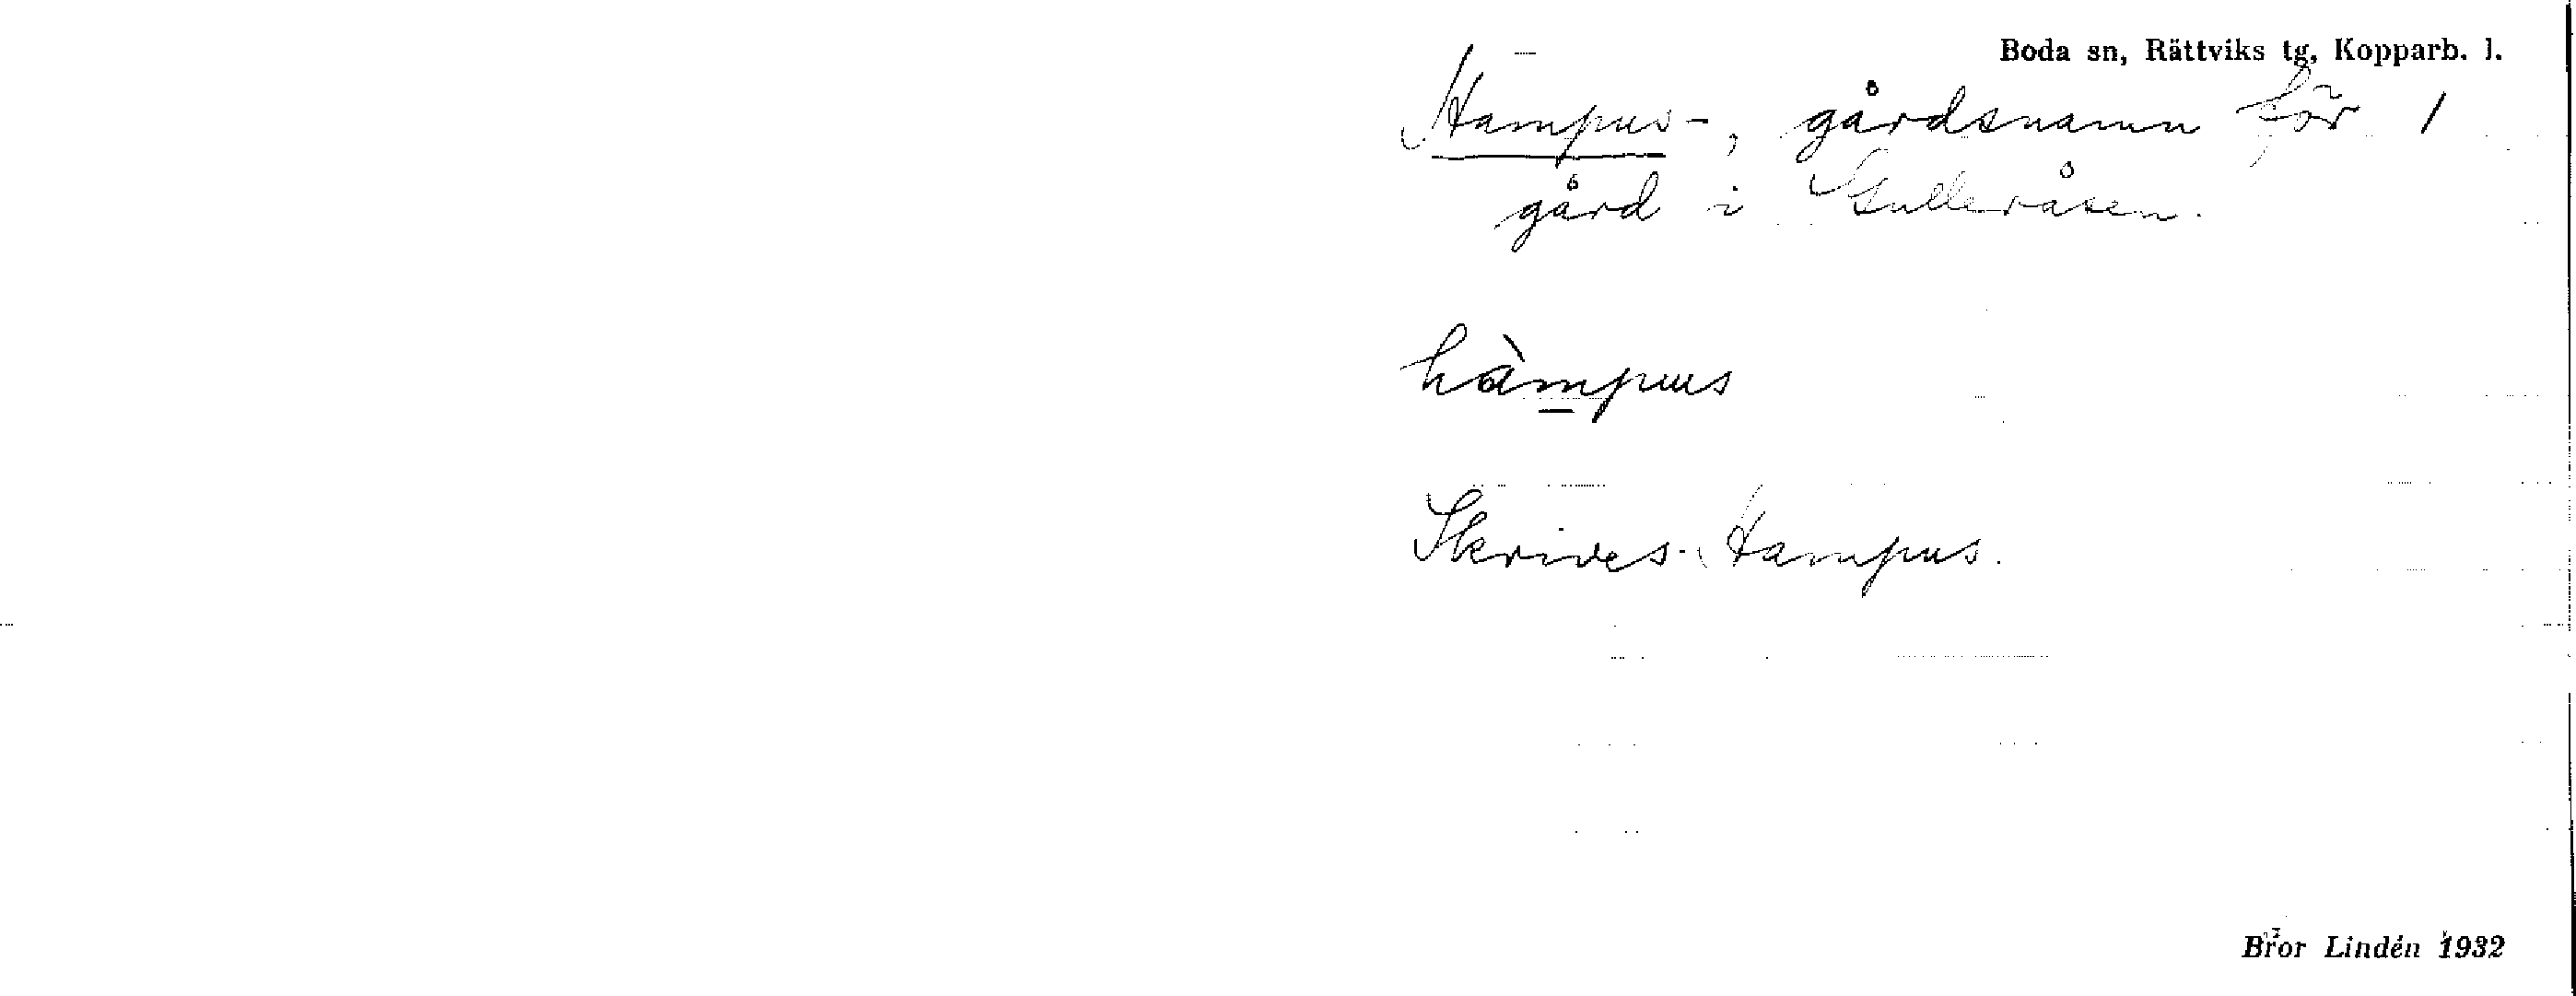 Boda sn, Rättviks tg, Kopparb. l.
Hampus-, gårdsnamn för 1
gård i Gulleråsen.
hàmpus
Skrives Hampus.
Bror Lindén 1932